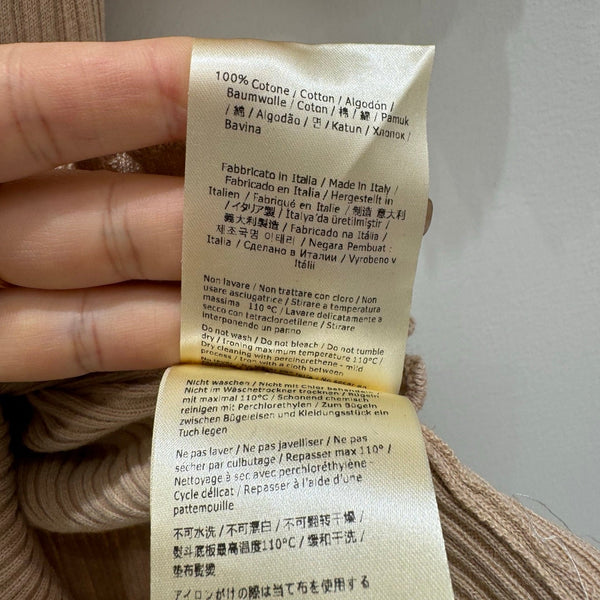 100% Cotone / Cotton / Algodón /
Baumwolle / Coton / 棉 / 綿 / Pamuk
/ 綿 / Algodão / 면 / Katun / Хлопок /
Bavina
Fabbricato in Italia / Made in Italy /
Fabricado en Italia / Hergestellt in
Italien / Fabriqué en Italie / 制造 意大利
/ イタリア製 / Italya'da üretilmiştir /
義大利製造 / Fabricado na Itália /
제조국명 이태리 / Negara Pembuat :
Italia / Сделано в Италии / Vyrobeno v
Itálii
Non lavare / Non trattare con cloro / Non
usare asciugatrice / Stirare a temperatura
massima 110°C / Lavare delicatamente a
secco con tetracloroetilene / Stirare
interponendo un panno
Do not wash / Do not bleach / Do not tumble
dry / Ironing maximum temperature 110°C /
Dry cleaning with perclnorethene - mild
process / Iron with a cloth between
Nicht waschen / Nicht mit Chlor behandeln
Nicht im Wäschetrockner trocknen / Bügeln
mit maximal 110°C / Schonend chemisch
reinigen mit Perchlorethylen / Zum Bügeln
zwischen Bügeleisen und Kleidungsstück ein
Tuch legen
Ne pas laver / Ne pas javelliser / Ne pas
sécher par culbutage / Repasser max 110° /
Nettoyage à sec avec perchloréthylène -
Cycle délicat / Repasser à l'aide d'une
pattemouille
不可水洗 / 不可漂白 / 不可翻转干燥 /
熨斗底板最高温度110°C / 缓和干洗 /
垫布熨烫
アイロンがけの際は当て布を使用する